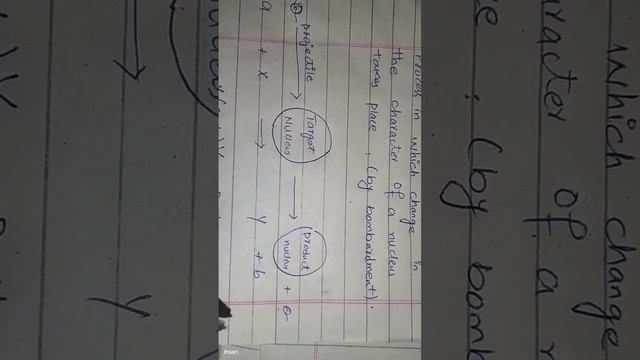 Process in which change in
the character of a nucleus
takes place, (by bombardment).
projectile → Target Nucleus → product nucleus +
a + x → y + b
Ihsan
which change
of a
(by bomb
y